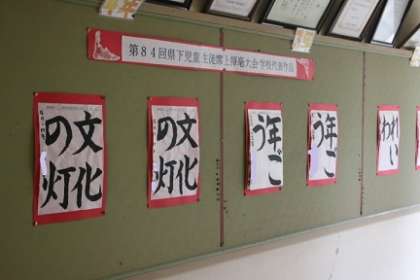 第84回県下児童生徒席上揮毫大会学校代表作品
文化
の灯
文化
の灯
年ご
う
年ご
う
れい
わ